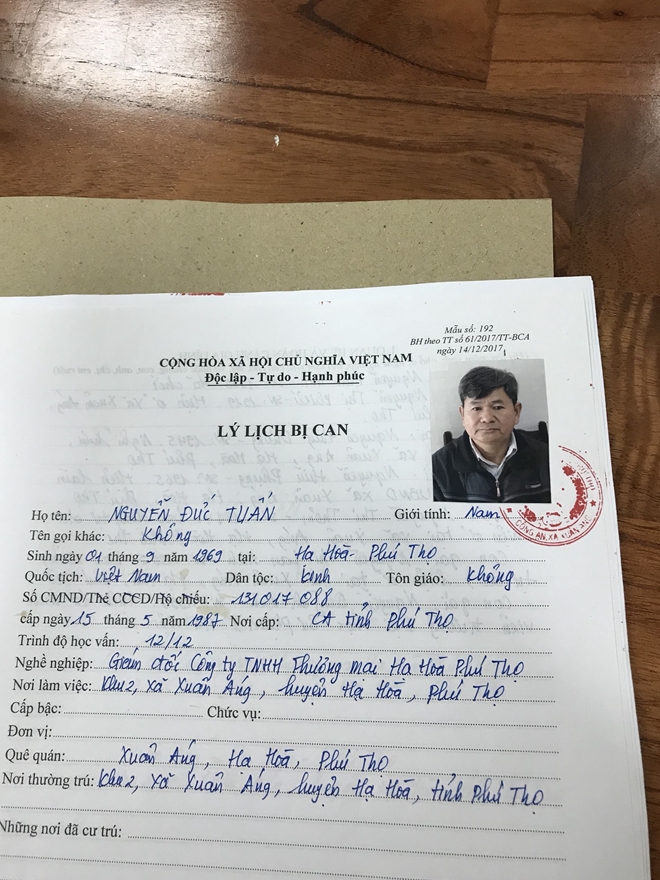 Mẫu số: 192
BH theo TT số 61/2017/TT-BCA
ngày 14/12/2017
CỘNG HÒA XÃ HỘI CHỦ NGHĨA VIỆT NAM
Độc lập - Tự do - Hạnh phúc
LÝ LỊCH BỊ CAN
Họ tên: NGUYỄN ĐỨC TUẤN Giới tính: Nam
Tên gọi khác: Không
Sinh ngày 01 tháng 9 năm 1969 tại: Hạ Hoà - Phú Thọ
Quốc tịch: Việt Nam Dân tộc: Kinh Tôn giáo: Không
Số CMND/Thẻ CCCD/Hộ chiếu: 131017088
cấp ngày 15 tháng 5 năm 1987 Nơi cấp: CA tỉnh Phú Thọ
Trình độ học vấn: 12/12
Nghề nghiệp: Giám đốc Công ty TNHH Thương mại Hạ Hoà Phú Thọ
Nơi làm việc: Khu 2, xã Xuân Áng, huyện Hạ Hoà, Phú Thọ
Cấp bậc: Chức vụ:
Đơn vị:
Quê quán: Xuân Áng, Hạ Hoà, Phú Thọ
Nơi thường trú: Khu 2, xã Xuân Áng, huyện Hạ Hoà, tỉnh Phú Thọ
Những nơi đã cư trú:
CÔNG AN XÃ XUÂN ÁNG